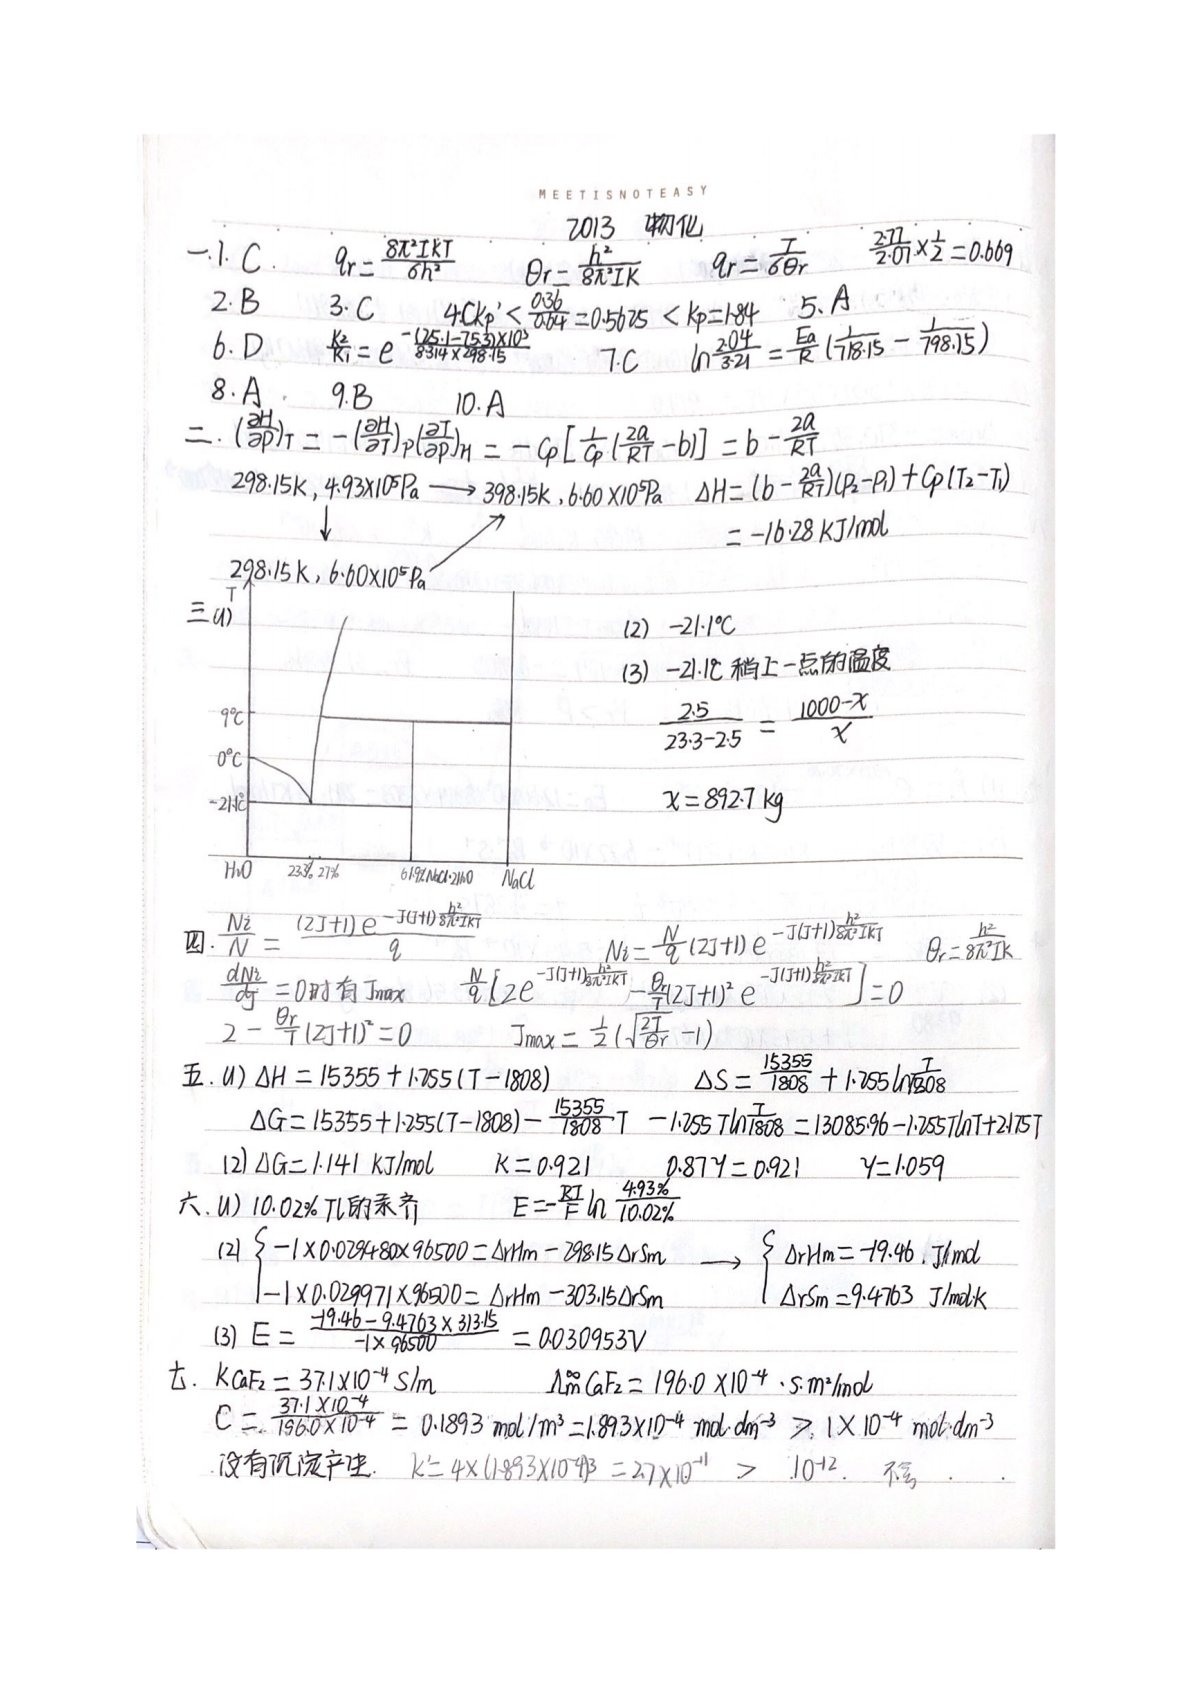 MEETISNOTEASY
2013 物化
一.1. C. qr=8π²IKT/σh² θr=h²/8π²IK qr=T/σθr 2.77/2.07×1/2=0.669
2.B 3.C 4.C Kp'<0.36/0.64=0.5625<Kp=1.84 5.A
6.D K2/K1=e^-(25.1-75.3)×10³/8.314×298.15 7.C ln2.04/3.21=Ea/R(1/718.15-1/798.15)
8.A. 9.B 10.A
二.(∂H/∂p)T=-(∂H/∂T)P(∂T/∂p)H=-Cp[1/Cp(2a/RT-b)]=b-2a/RT
298.15K, 4.93×10⁵Pa → 398.15K, 6.60×10⁵Pa ΔH=(b-2a/RT)(P2-P1)+Cp(T2-T1)
=-16.28KJ/mol
298.15K, 6.60×10⁵Pa
三(1) T
(2) -21.1℃
(3) -21.1℃稍上一点的温度
9℃
2.5/23.3-2.5=1000-x/x
0℃
-21.1℃
x=892.7kg
H2O 23.3% 27% 61.9% NaCl·2H2O NaCl
四. Ni/N=(2J+1)e^-J(J+1)h²/8π²IKT/q Ni=N/q(2J+1)e^-J(J+1)h²/8π²IKT θr=h²/8π²IK
dNi/dj=0时有Jmax N/q[2e^-J(J+1)h²/8π²IKT-θr/T(2J+1)²e^-J(J+1)h²/8π²IKT]=0
2-θr/T(2J+1)²=0 Jmax=1/2(√2T/θr-1)
五.(1) ΔH=15355+1.255(T-1808) ΔS=15355/1808+1.255lnT/1808
ΔG=15355+1.255(T-1808)-15355/1808T-1.255TlnT/1808=13085.96-1.255TlnT+2.175T
(2)ΔG=1.141KJ/mol K=0.921 0.87γ=0.921 γ=1.059
六.(1) 10.02%Tl的汞齐 E=-RT/Fln4.93%/10.02%
(2) {-1×0.029480×96500=ΔrHm-298.15ΔrSm → {ΔrHm=-19.46.J/mol
-1×0.029971×96500=ΔrHm-303.15ΔrSm ΔrSm=9.4763 J/mol·K
(3) E=-19.46-9.4763×313.15/-1×96500=0.030953V
七. κCaF2=37.1×10⁻⁴S/m Λm∞CaF2=196.0×10⁻⁴·S·m²/mol
C=37.1×10⁻⁴/196.0×10⁻⁴=0.1893mol/m³=1.893×10⁻⁴mol·dm⁻³>1×10⁻⁴mol·dm⁻³
没有沉淀产生. K'=4×(1.893×10⁻⁴)³=2.7×10⁻¹¹>10⁻¹². 不会